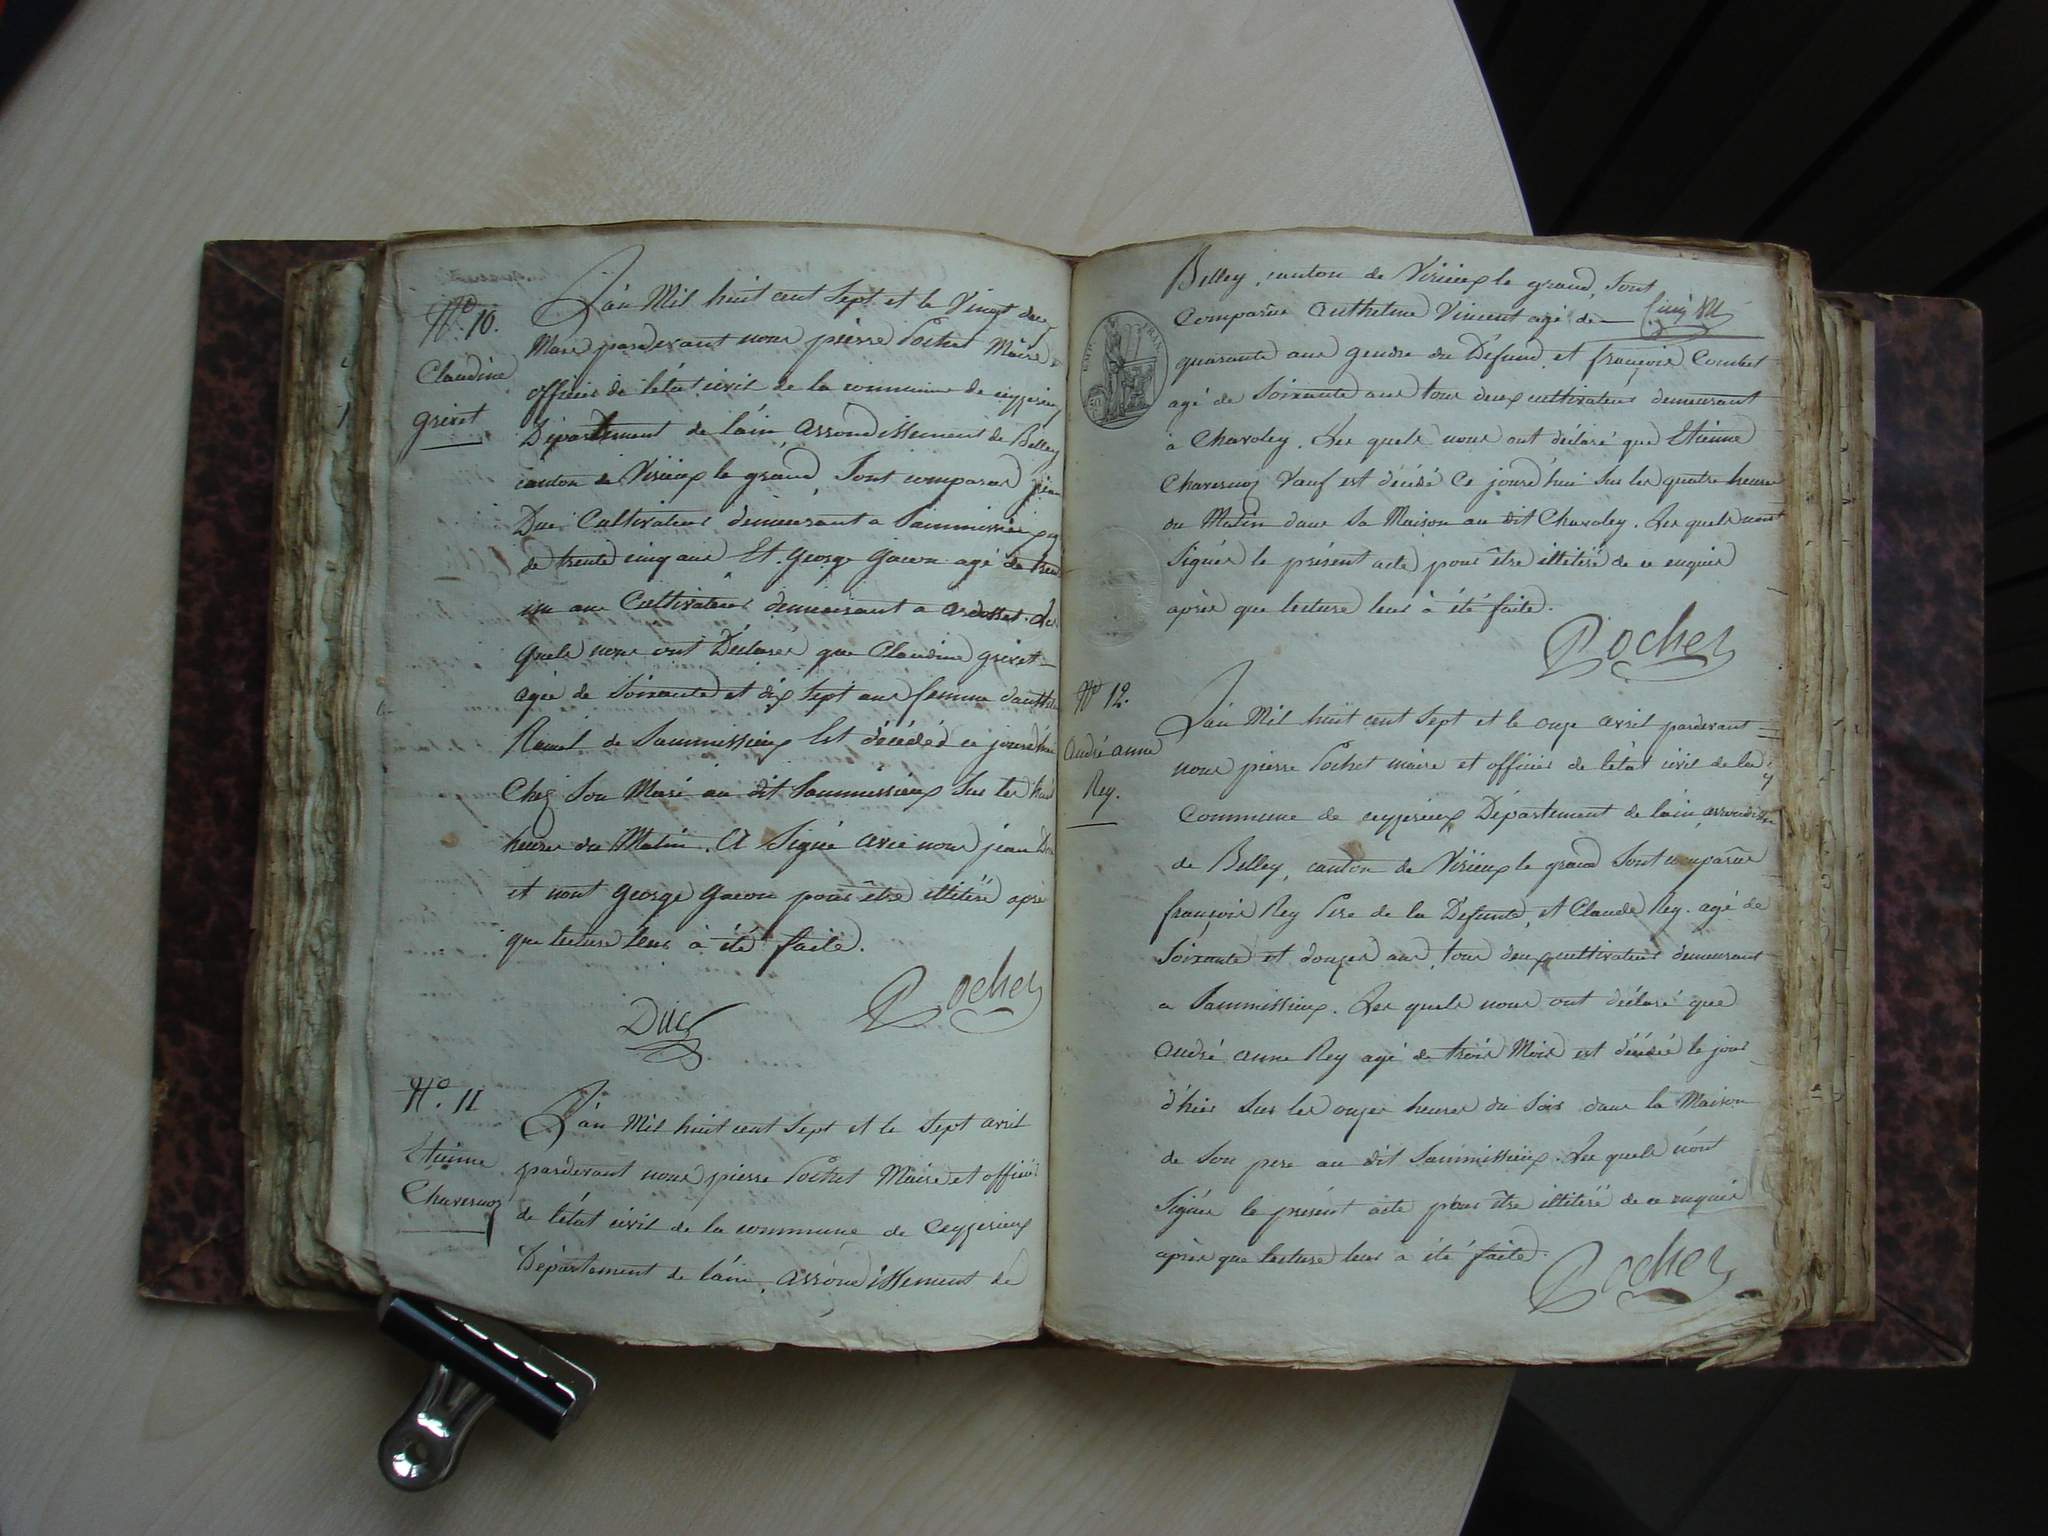 No. 10.
Claudine
grivet
L'an Mil huit cent sept et le Vingt deux
Mars pardevant nous pierre Pochet Maire
officier de l'état civil de la commune de ceyzerieux
Département de l'ain, arrondissement de Belley
canton de Virieux le grand, Sont comparus jean
Duc Cultivateur demeurant a Sammissieux
de trente cinq ans Et George Gacon agé de
un ans Cultivateur demeurant a ardosset. Les
quels nous ont Déclarés que Claudine grivet
agée de Soixante et dix sept ans femme
de Sammissieux Est décédée ce jourd'hui
Chez Son Mari au dit Sammissieux Sur les huit
heures du Matin. A Signé avec nous jean Duc
et nont George Gacon pour être illitéré après
que lecture leur à été faite.
Duc
Pochet
No. 11
Etienne
Chavernoz
L'an Mil huit cent Sept et le Sept avril
pardevant nous pierre Pochet Maire et officier
de l'état civil de la commune de Ceyzerieux
Département de l'ain, arrondissement de
Belley, canton de Virieux le grand, Sont
Comparus Anthelme Vincent agé de
quarante ans gendre du Défund, et françois Combet
agé de Soixante ans tous deux cultivateurs demeurant
à Charoley. Les quels nous ont déclaré que Etienne
Chavernoz Vauf est décédé Ce jourd'hui Sur les quatre heures
du Matin dans Sa Maison au dit Charoley. Les quels nont
Signés le présent acte pour être illitéré de ce enquis
après que lecture leur à été faite.
Pochet
EMP. FRAN.
No 12.
André anne
Rey.
L'an Mil huit cent Sept et le onze avril pardevant
nous pierre Pochet maire et officier de l'état civil de la
Commune de ceyzerieux Département de l'ain,
de Belley, canton de Virieux le grand Sont comparus
françois Rey Pere de la Defunte, et Claude Rey. agé de
Soixante et douzes ans, tous deux cultivateurs demeurant
a Sammissieux. Les quels nous ont déclaré que
André anne Rey agé de trois Mois est décédé le jour
d'hier Sur les onzes heures du Soir dans la Maison
de Son pere au dit Sammissieux. Les quels n'ont
Signés le présent acte pour être illitéré de ce enquis
après que lecture leur a été faite.
Pochet